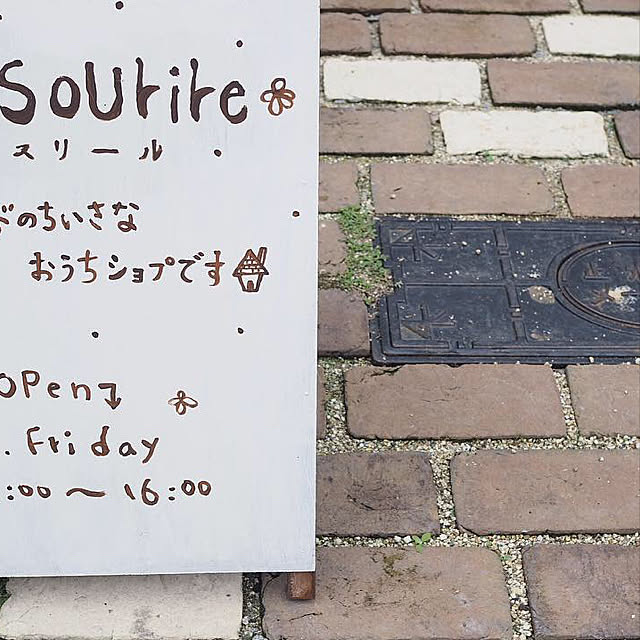 Sourire
スリール
どのちいさな
おうちショップです
OPen
. Friday
:00 〜 16:00